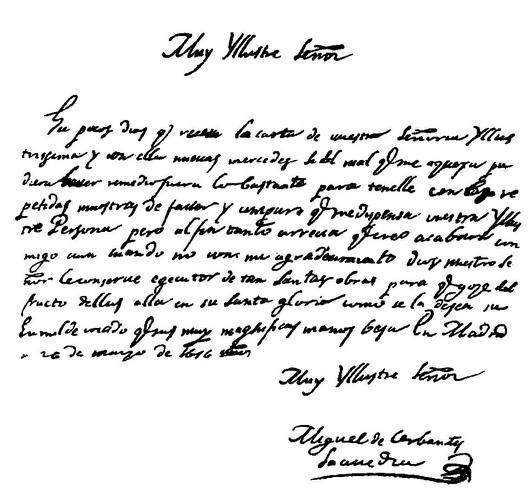 Muy Yllustre Señor
Ha pocos dias que recebi la carta de vuestra Señoria Yllus
trissima y con ella nuevas mercedes si del mal que me aquexa pu
diera haver remedio fuera lo bastante para tenelle con las re
petidas muestras de favor y amparo que me dispensa vuestra Yllus
tre Persona pero al fin tanto arrecia que creo acabara con
migo aun cuando no con mi agradecimiento Dios nuestro Se
ñor le conserve egecutor de tan Santas obras para que goze del
fructo dellas alla en su Santa gloria como se la desea su
humilde criado que sus muy magnificas manos besa En Madrid
a 26 de marzo de 1616 años
Muy Yllustre Señor
Miguel de Cerbantes
Saauedra